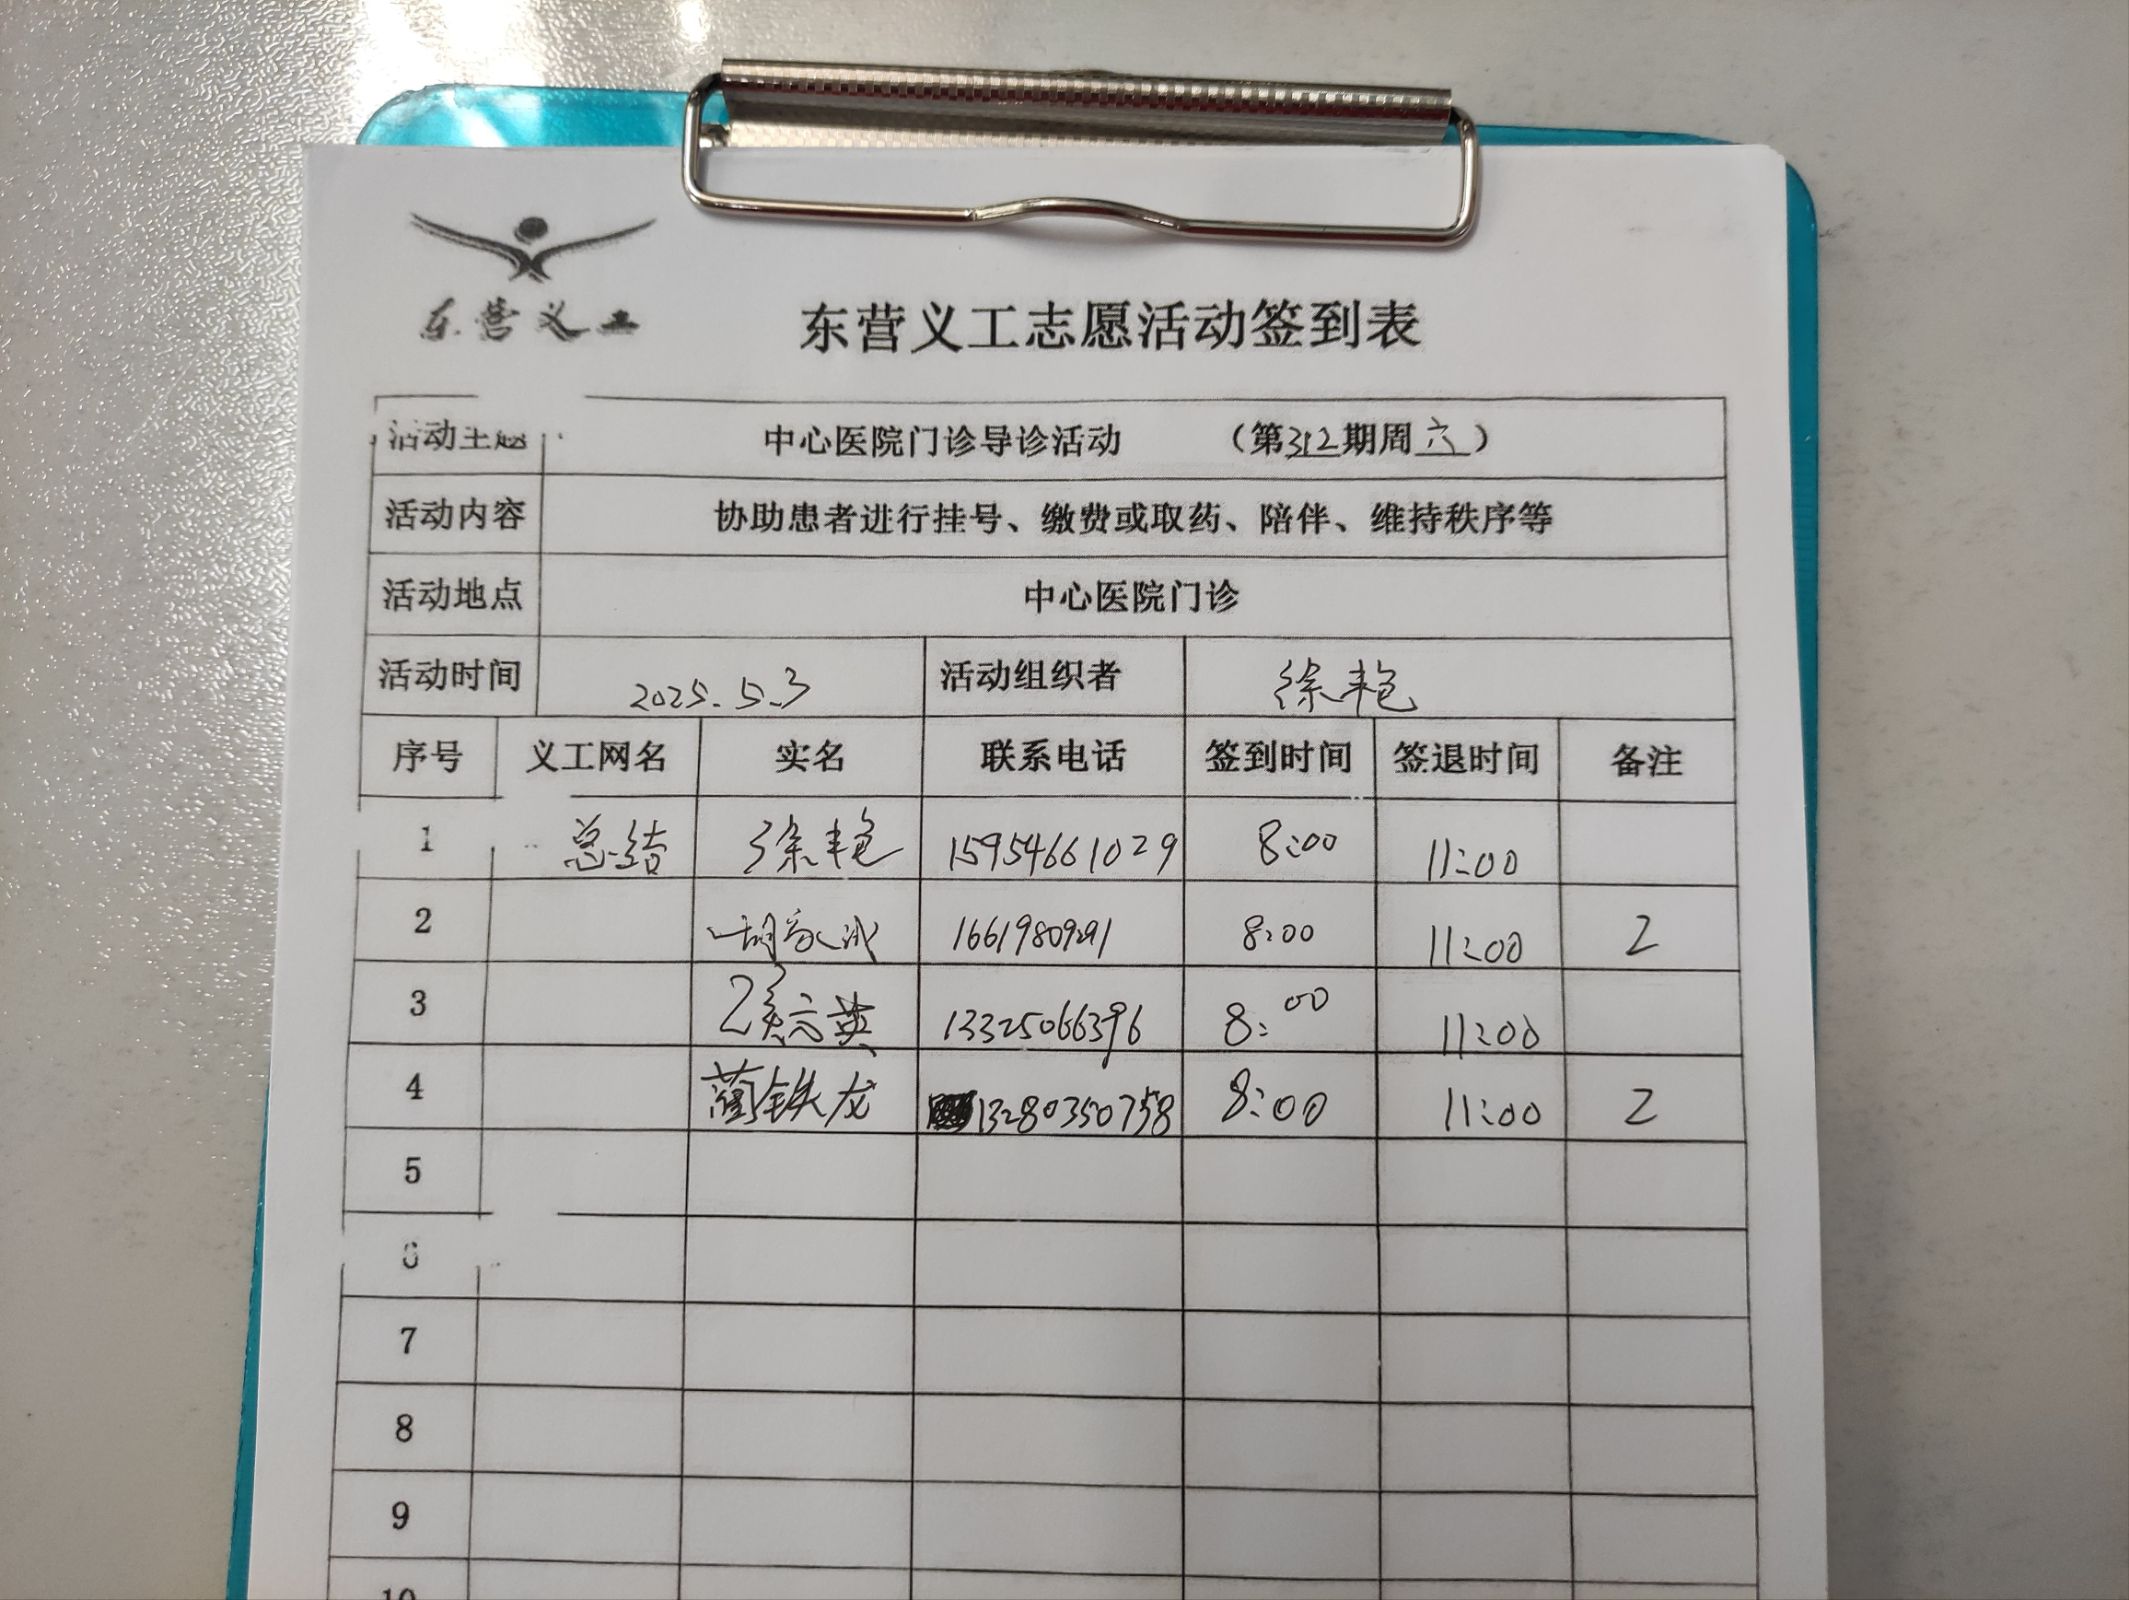 东营义工
东营义工志愿活动签到表
活动主题 中心医院门诊导诊活动 （第312期周六）
活动内容 协助患者进行挂号、缴费或取药、陪伴、维持秩序等
活动地点 中心医院门诊
活动时间 2025.5.3 活动组织者 徐艳
序号 义工网名 实名 联系电话 签到时间 签退时间 备注
1 总结 徐艳 15954661029 8:00 11:00
2 16619809291 8:00 11:00 2
3 13325066396 8:00 11:00
4 蔺铁龙 13280350758 8:00 11:00 2
5
6
7
8
9
10